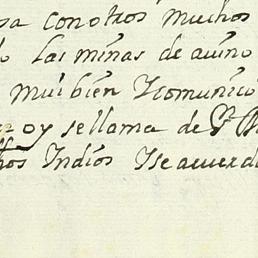 sa conotros muchos
o las minas de auino
muibien Ycomunico
oy sellama de Sn
hos Indios Yseacuerd